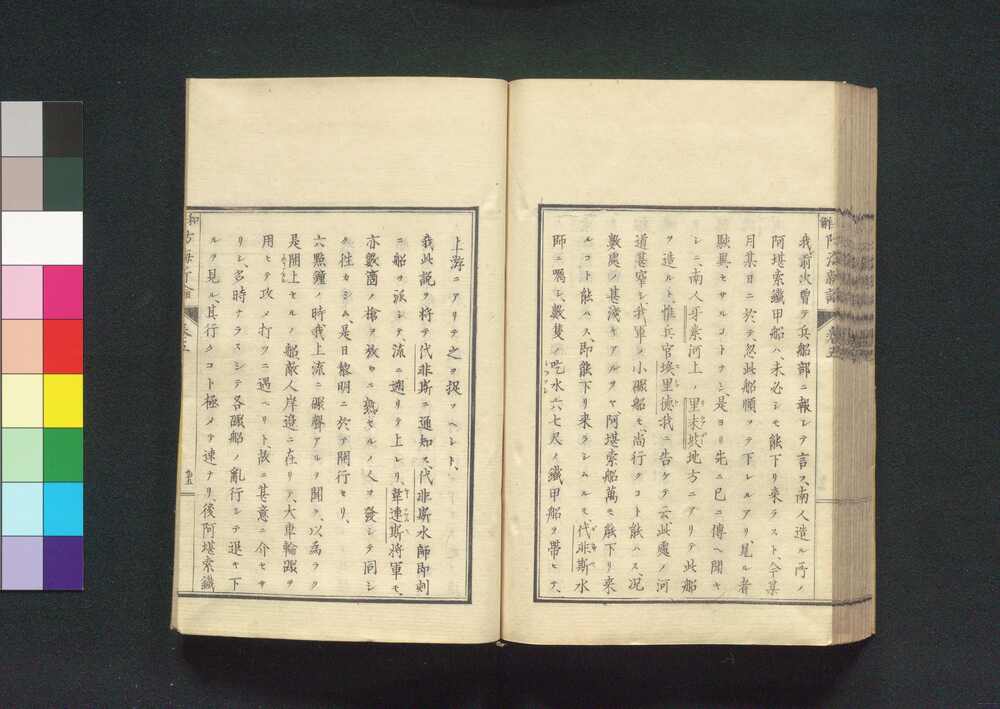 我前次曾テ兵船部ニ報シテ言ス、南人造ル所ノ
阿堪索鐵甲船ハ、未必シモ能下リ来ラスト、今某
月某日ニ於テ、忽此船順ッテ下レルアリ、見ル者
駭異セサルコトナシ、是ヨリ先ニ已ニ傳ヘ聞キ
シニ、南人牙索河上ノ里未坡地方ニアリテ此船
ヲ造ルト、惟兵官埃里德我ニ告ケテ云、此處ノ河
道甚窄シ、我軍ノ小礟船モ、尚行クコト能ハス、况
數處ノ甚淺キアルヲヤ、阿堪索船萬モ能下リ来
ルコト能ハス、即能下リ来ラシムルモ、代非斯水
師ニ囑シ、數隻ノ吃水六七尺ノ鐵甲船ヲ帶ヒテ、
上游ニアリテ之ヲ捉ツヘシト、
我此説ヲ將テ代非斯ニ通知ス、代非斯水師即刻
ニ船ヲ派シテ、流ニ遡リテ上レリ、韋連斯將軍モ、
亦數箇ノ槍ヲ放ツニ熟セルノ人ヲ發シテ同シ
ク往カシム、是日黎明ニ於テ開行セリ、
六點鐘ノ時我上流ニ礟聲アルヲ聞ク、以為ラク
是開上セルノ船、敵人岸邊ニ在リテ、大車輪礟ヲ
用ヒテ攻メ打ツニ遇ヘリト、故ニ甚意ニ介セサ
リシ、多時ナラスシテ各礟船ノ亂行シテ退キ下
ルヲ見ル、其行クコト極メテ速ナリ、後阿堪索鐵